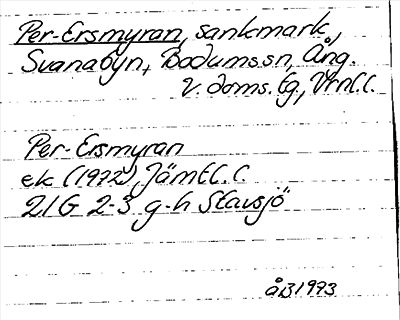 Per-Ersmyran, sankmark,
Svanabyn, Bodums sn, Ång.
v. doms. tg, Vrnl. l.
Per-Ersmyran
ek (1972), Jämtl. l.
21G 2-3 g-h Stavsjö
åB 1973